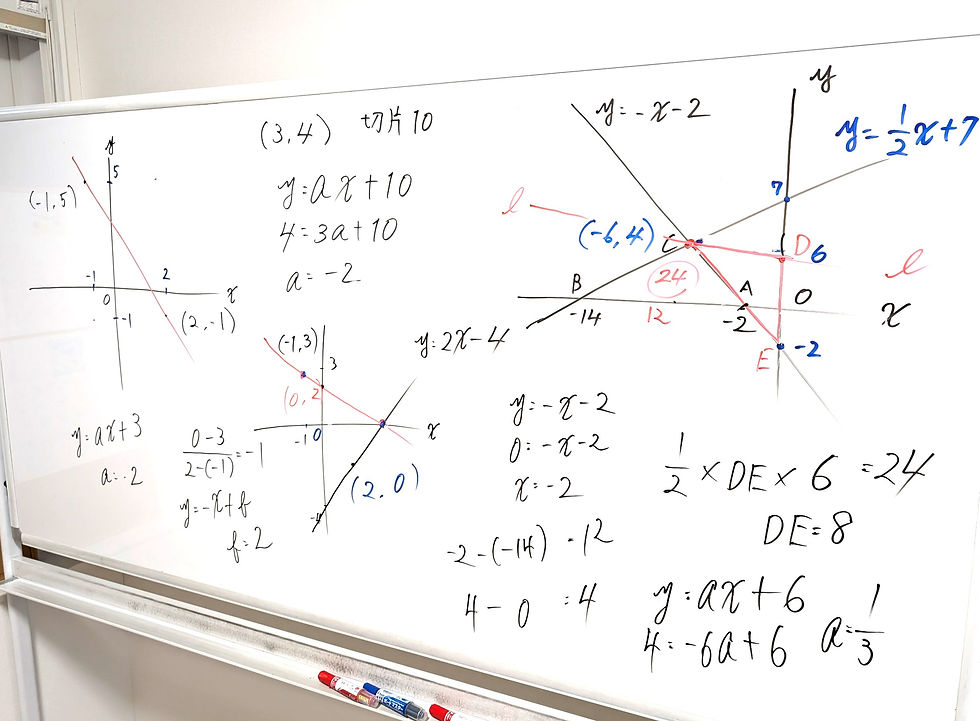 y
5
(-1,5)
-1
2
0
x
-1
(2,-1)
y=ax+3
a=-2
(3,4) 切片10
y=ax+10
4=3a+10
a=-2
(-1,3)
3
(0,2
-1
0
x
-4
y=2x-4
(2,0)
0-3
2-(-1) =-1
y=-x+b
b=2
y=-x-2
y
y=1/2x+7
7
l
(-6,4)
C
D 6
l
24
B
A
0
x
-14
12
-2
E -2
y=-x-2
0=-x-2
x=-2
-2-(-14)=12
4-0=4
1/2×DE×6=24
DE=8
y=ax+6
4=-6a+6
a=1/3